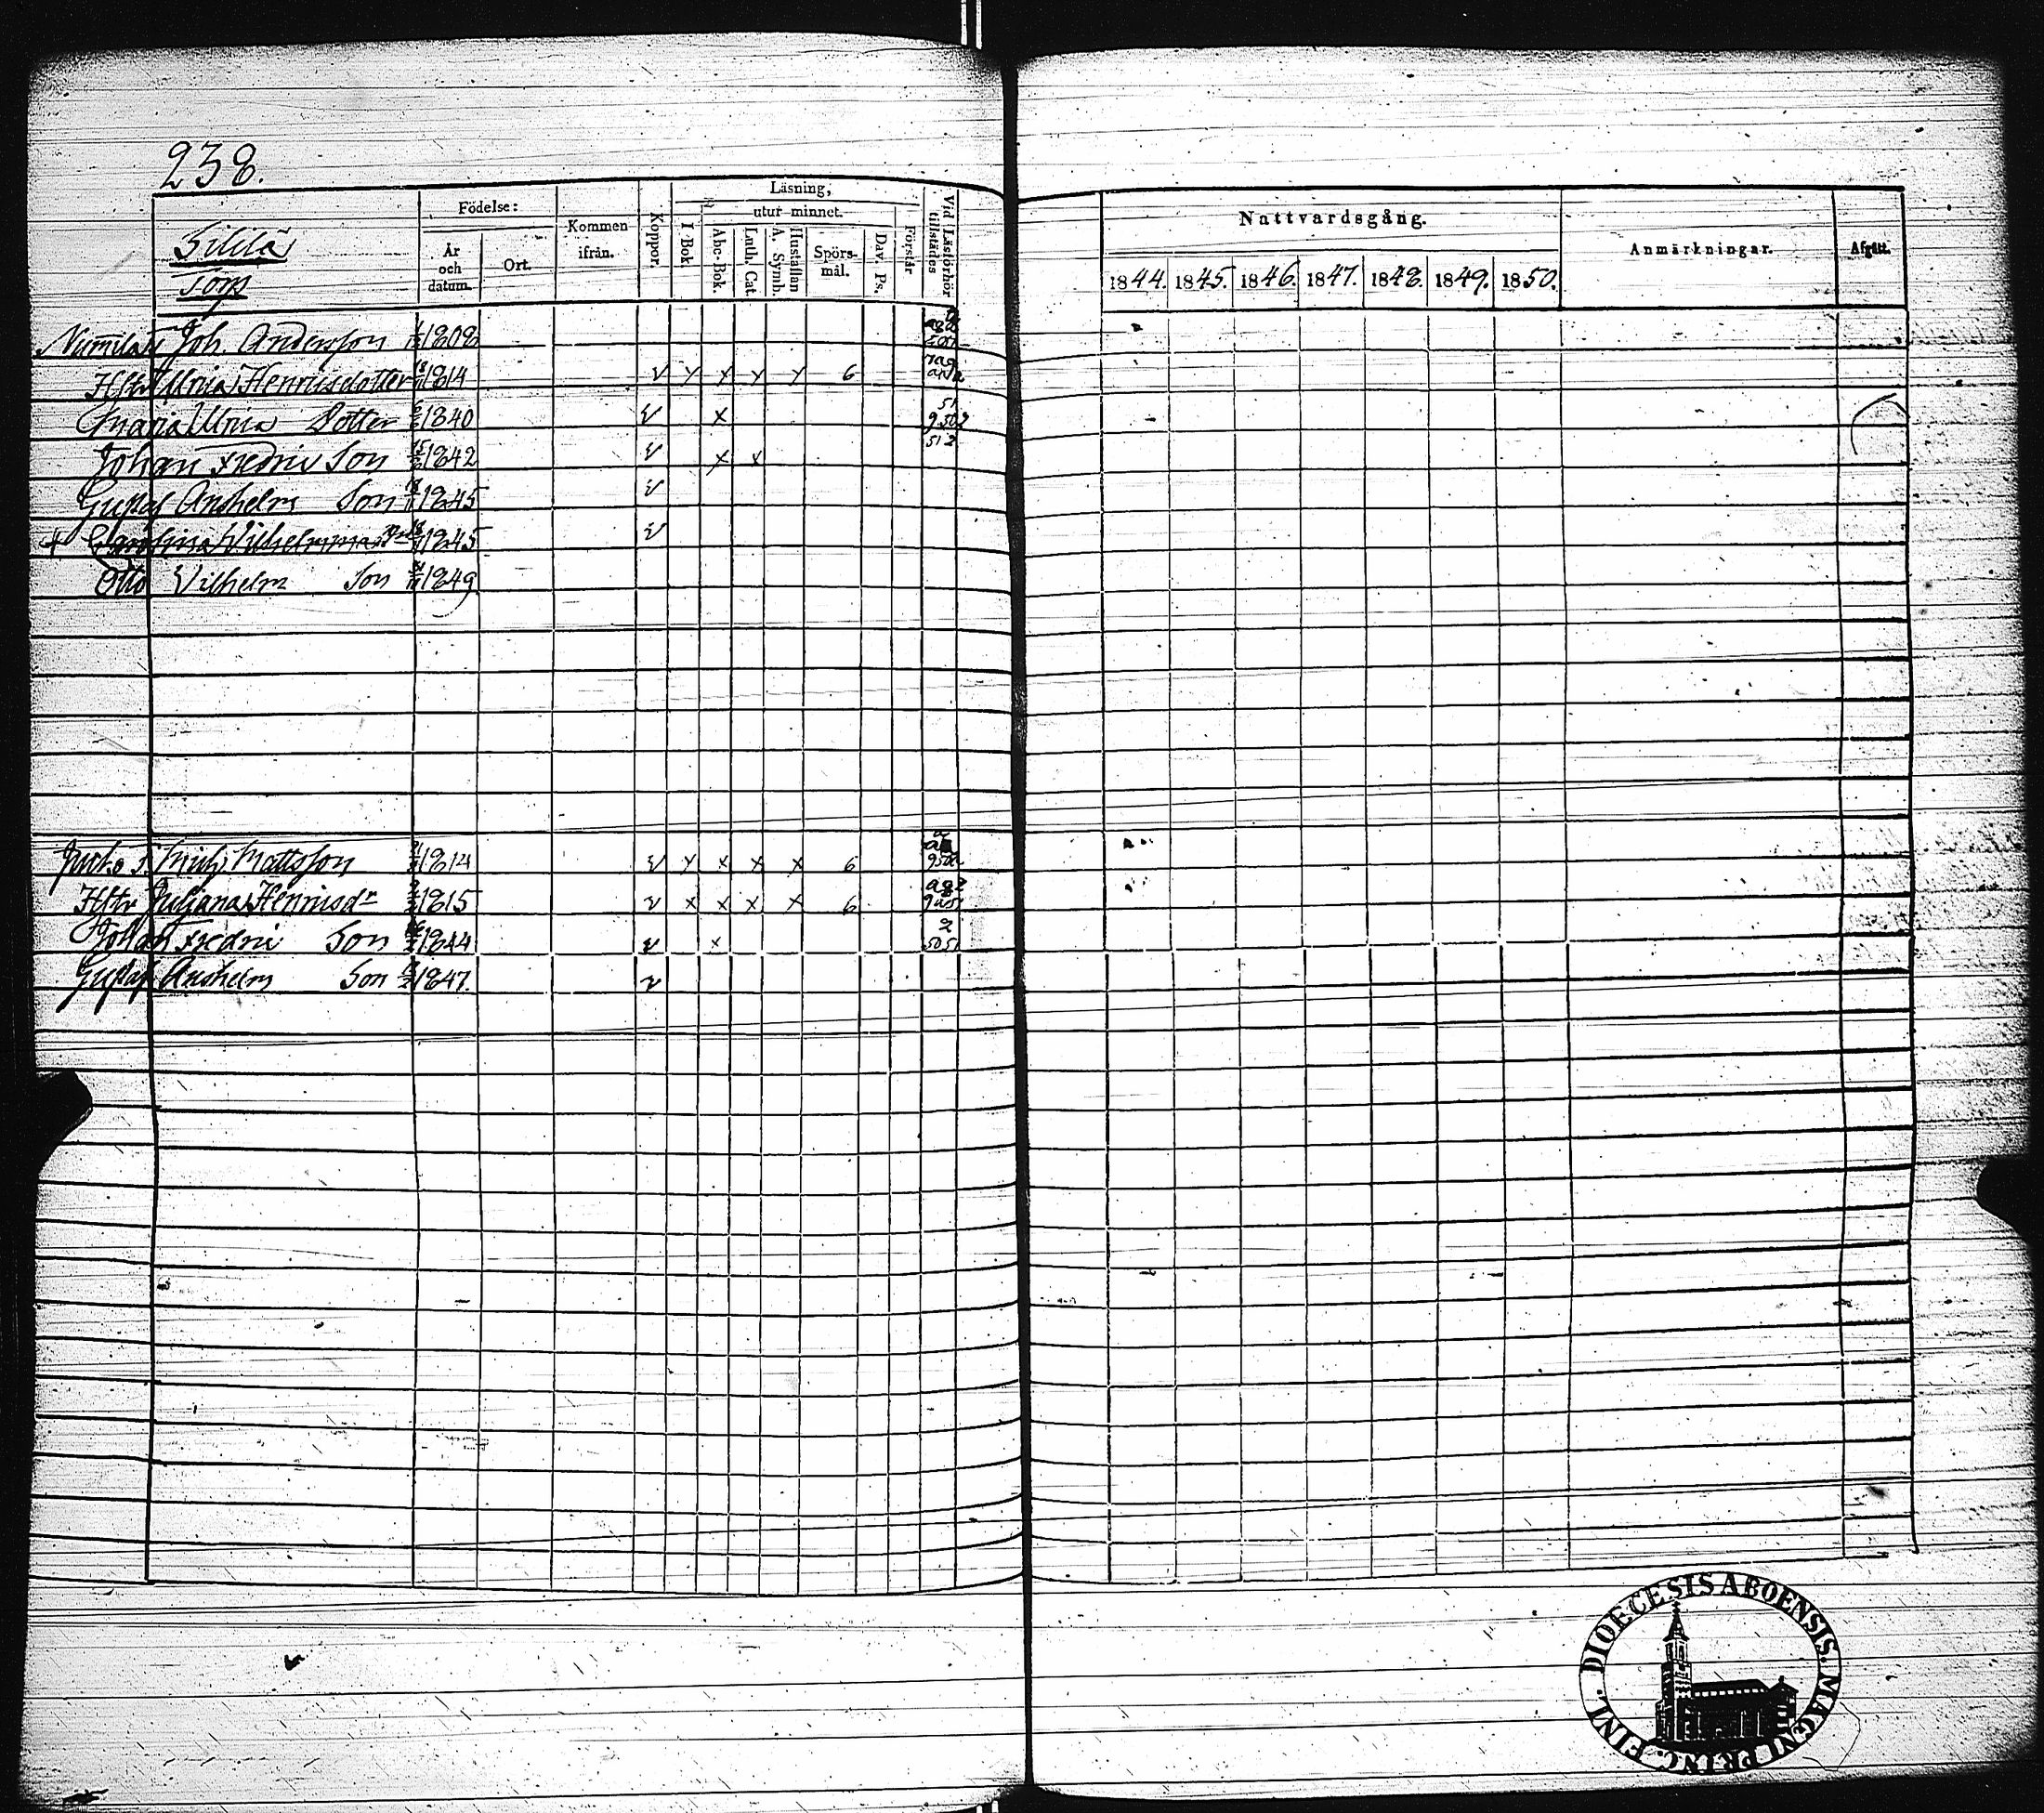 238.
Tillä
Torp
Födelse:
År och datum.
Ort.
Kommen ifrån.
Koppor.
Läsning,
I Bok.
utur minnet.
Abc-Bok.
Luth. Cat.
Hustaflan A. Symb.
Spörsmål.
Dav. Ps.
Förstår
Vid Läsförhör tillstädes
Nattvardsgång.
1844. 1845. 1846. 1847. 1848. 1849. 1850.
Anmärkningar.
Afgått.
Joh. Andersson 1808
Hstr Ulrica Henricsdotter 1814 v y x y y 6
Maria Ulrica Dotter 1840 v x
Johan Fredric Son 1842 v x x
Gustaf Anshelm Son 1845 v
+ Carolina Vilhelmina 1845 v
Otto Vilhelm Son 1849
Mich. Mattsson 1814 v y x x x 6
Hstr Juliana Henricsdr 1815 v x x x x 6
Johan Fredric Son 1844 v x 50 51
Gustaf Anshelm Son 1847. v
DIOECESIS ABOENSIS. MAGNI PRINC. FINL.